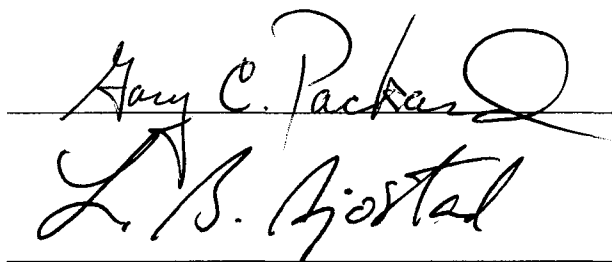 Gary C. Packard
L. B. Bjostad